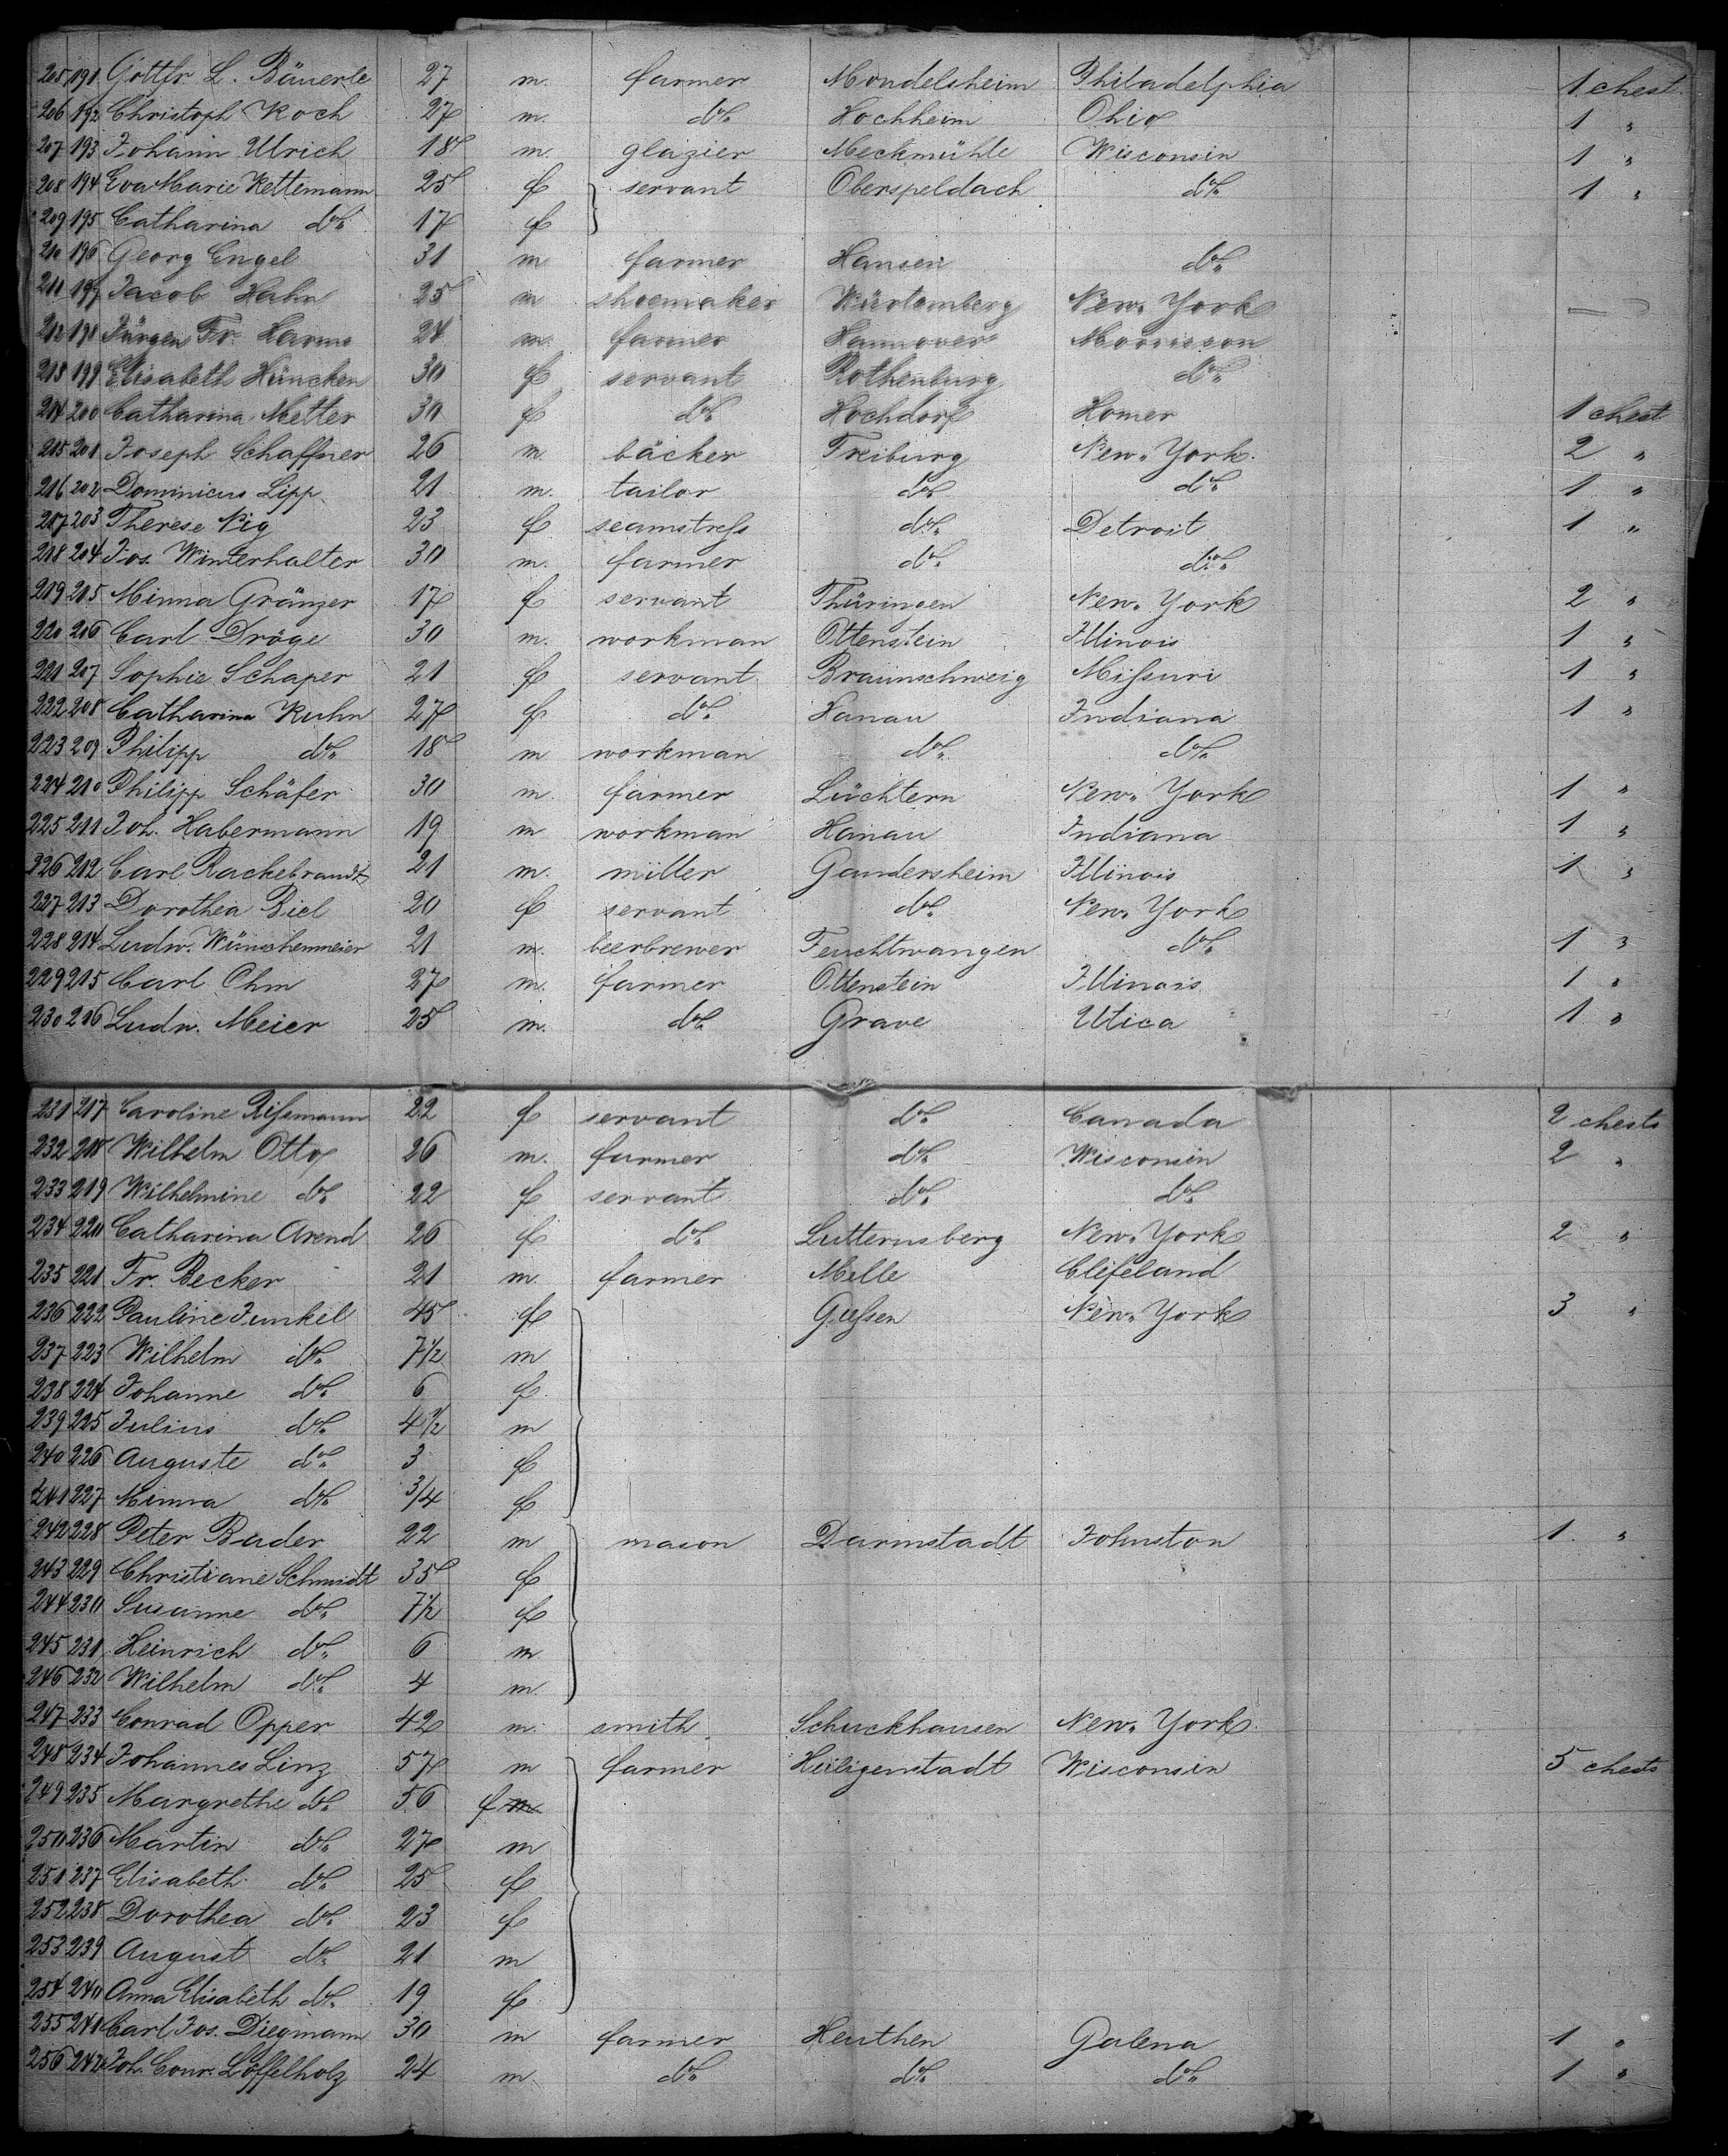 205 191 Gottfr. L. Bäuerle 27 m. farmer Mondelsheim Philadelphia 1 chest.
206 192 Christoph Koch 27 m. do. Hochheim Ohio 1 "
207 193 Johann Ulrich 18 m. glazier Meckmühle Wisconsin 1 "
208 194 Eva Marie Kettemann 25 f servant Oberspeldach do. 1 "
209 195 Catharina do. 17 f
210 196 Georg Engel 31 m farmer Hansen do.
211 197 Jacob Hahn 25 m shoemaker Würtemberg New-York —
212 198 Jürgen Fr. Harms 24 m. farmer Hannover Morrisson
213 199 Elisabeth Hüncken 30 f servant Rothenburg do.
214 200 Catharina Metter 30 f do. Hochdorf Homer 1 chest
215 201 Joseph Schaffner 26 m bäcker Freiburg New-York. 2 "
216 202 Dominicus Lipp 21 m. tailor do. do. 1 "
217 203 Therese Nig 23 f seamstress do. Detroit 1 "
218 204 Jos. Winterhalter 30 m. farmer do. do.
219 205 Minna Gränzer 17 f servant Thüringen New-York 2 "
220 206 Carl Dröge 30 m. workman Ottenstein Illinois 1 "
221 207 Sophie Schaper 21 f servant Braunschweig Missuri 1 "
222 208 Catharina Kuhn 27 f do. Hanau Indiana 1 "
223 209 Philipp do. 18 m workman do. do.
224 210 Philipp Schäfer 30 m. farmer Lüchtern New-York 1 "
225 211 Joh. Habermann 19 m workman Hanau Indiana 1 "
226 212 Carl Rackebrandt 21 m. miller Gandersheim Illinois 1 "
227 213 Dorothea Biel 20 f servant do. New-York
228 214 Ludw. Wünschenmeier 21 m. beerbrewer Feuchtwangen do. 1 "
229 215 Carl Ohm 27 m. farmer Ottenstein Illinois 1 "
230 216 Ludw. Meier 25 m. do. Grave Utica 1 "
231 217 Caroline Rissmann 22 f servant do. Canada 2 chests
232 218 Wilhelm Otto 26 m. farmer do. Wisconsin 2 "
233 219 Wilhelmine do. 22 f servant do. do.
234 220 Catharina Arend 26 f do. Lutternsberg New-York 2 "
235 221 Fr. Becker 21 m. farmer Melle Clefeland
236 222 Pauline Junkel 45 f Giessen New-York 3 "
237 223 Wilhelm do. 7½ m
238 224 Johanne do. 6 f.
239 225 Julius do. 4½ m
240 226 Auguste do. 3 f
241 227 Minna do. 3/4 f
242 228 Peter Bader 22 m mason Darmstadt Johnston 1 "
243 229 Christiane Schmidt 35 f
244 230 Susanne do. 7½ f
245 231 Heinrich do. 6 m
246 232 Wilhelm do. 4 m.
247 233 Conrad Opper 42 m. smith Schuckhausen New-York.
248 234 Johannes Linz 57 m farmer Heiligenstadt Wisconsin 5 chests
249 235 Margrethe do. 56 f m
250 236 Martin do. 27 m
251 237 Elisabeth do. 25 f
252 238 Dorothea do. 23 f
253 239 August do. 21 m
254 240 Anna Elisabeth do. 19 f
255 241 Carl Jos. Diegmann 30 m farmer Heuthen Galena 1 "
256 242 Joh. Conr. Löffelholz 24 m. do. do. do. 1 "